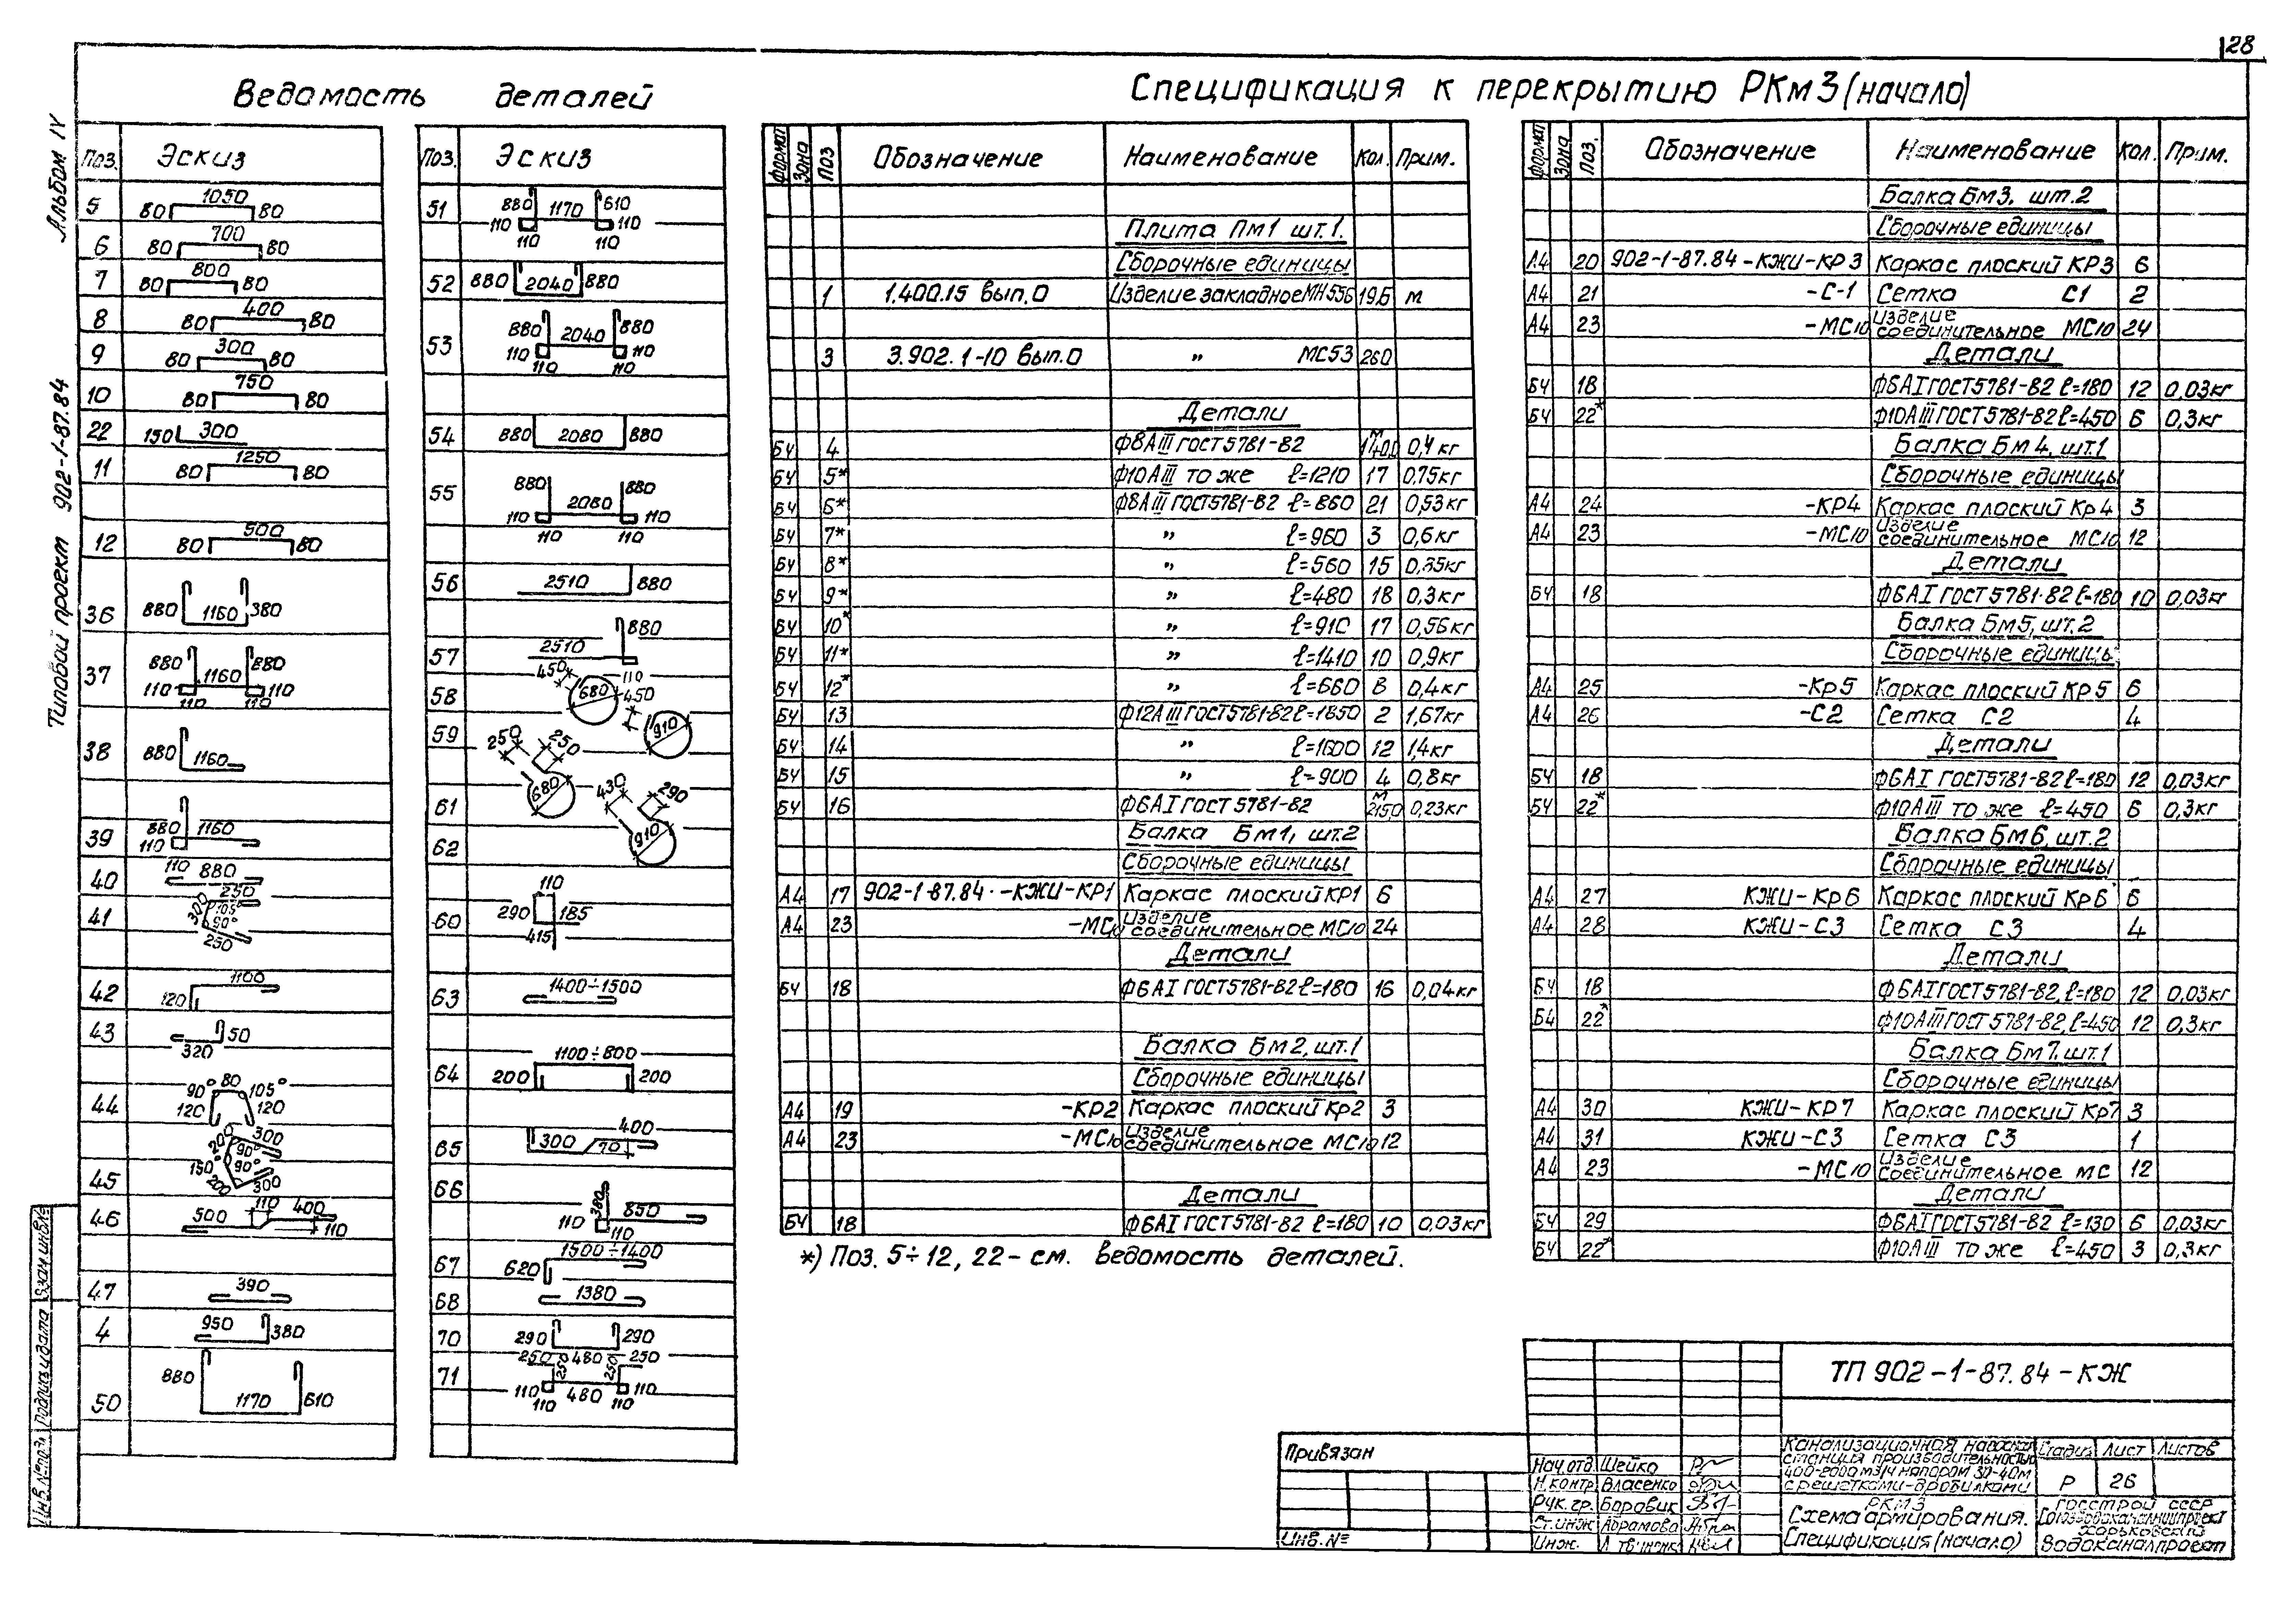 28
Альбом IV
Типовой проект 902-1-87.84
Ведомость деталей
Поз. Эскиз
5 80 1050 80
6 80 700 80
7 80 800 80
8 80 400 80
9 80 300 80
10 80 750 80
22 150 300
11 80 1250 80
12 80 500 80
36 880 1160 380
37 880 1160 880 110 110 110 110
38 880 1160
39 880 1160 110
40 110 880
41 300 250 105° 90° 250
42 120 1100
43 320 50
44 90° 80 105° 120 120
45 200 300 90° 150° 90° 200 300
46 500 110 400 110
47 390
4 950 380
50 880 1170 610
Поз. Эскиз
51 880 1170 610 110 110 110 110
52 880 2040 880
53 880 2040 880 110 110 110 110
54 880 2080 880
55 880 2080 880 110 110 110 110
56 2510 880
57 2510 880 110
58 450 680 450
59 910
61 250 250 680
62 430 290 910
60 110 290 185 415
63 1400÷1500
64 1100÷800 200 200
65 300 400 70
66 380 850 110 110
67 1500÷1400 620
68 1380
70 290 480 290
71 250 250 250 250 110 480 110 110 110
Спецификация к перекрытию РКм3 (начало)
Формат Зона Поз Обозначение Наименование Кол. Прим.
Плита Пм1 шт.1.
Сборочные единицы
1 1.400.15 вып.0 Изделие закладное МН556 19.6 м
3 3.902.1-10 вып.0 " МС53 260
Детали
БЧ 4 Ф8АIII ГОСТ 5781-82 м 1400 0,4 кг
БЧ 5* Ф10АIII то же ℓ=1210 17 0,75кг
БЧ 6* Ф8АIII ГОСТ 5781-82 ℓ=860 21 0,53кг
БЧ 7* " ℓ=960 3 0,6кг
БЧ 8* " ℓ=560 15 0,35кг
БЧ 9* " ℓ=480 18 0,3кг
БЧ 10* " ℓ=910 17 0,56кг
БЧ 11* " ℓ=1410 10 0,9кг
БЧ 12* " ℓ=660 8 0,4кг
БЧ 13 Ф12АIII ГОСТ 5781-82 ℓ=1850 2 1,67кг
БЧ 14 " ℓ=1600 12 1,4кг
БЧ 15 " ℓ=900 4 0,8кг
БЧ 16 Ф6АI ГОСТ 5781-82 м 215,0 0,23кг
Балка Бм1, шт.2
Сборочные единицы
А4 17 902-1-87.84.-КЖИ-КР1 Каркас плоский КР1 6
А4 23 -МС10 Изделие соединительное МС10 24
Детали
БЧ 18 Ф6АI ГОСТ 5781-82 ℓ=180 16 0,04кг
Балка Бм2, шт.1
Сборочные единицы
А4 19 -КР2 Каркас плоский Кр2 3
А4 23 -МС10 Изделие соединительное МС10 12
Детали
БЧ 18 Ф6АI ГОСТ 5781-82 ℓ=180 10 0,03кг
*) Поз. 5÷12, 22 - см. ведомость деталей.
Формат Зона Поз. Обозначение Наименование Кол. Прим.
Балка Бм3, шт.2
Сборочные единицы
А4 20 902-1-87.84-КЖИ-КР3 Каркас плоский КР3 6
А4 21 -С-1 Сетка С1 2
А4 23 -МС10 Изделие соединительное МС10 24
Детали
БЧ 18 Ф6АI ГОСТ 5781-82 ℓ=180 12 0,03кг
БЧ 22* Ф10АIII ГОСТ 5781-82 ℓ=450 6 0,3кг
Балка Бм4, шт.1
Сборочные единицы
А4 24 -КР4 Каркас плоский Кр4 3
А4 23 -МС10 Изделие соединительное МС10 12
Детали
БЧ 18 Ф6АI ГОСТ 5781-82 ℓ=180 10 0,03кг
Балка Бм5, шт.2
Сборочные единицы
А4 25 -Кр5 Каркас плоский Кр5 6
А4 26 -С2 Сетка С2 4
Детали
БЧ 18 Ф6АI ГОСТ 5781-82 ℓ=180 12 0,03кг
БЧ 22* Ф10АIII то же ℓ=450 6 0,3кг
Балка Бм6, шт.2
Сборочные единицы
А4 27 КЖИ-Кр6 Каркас плоский Кр6 6
А4 28 КЖИ-С3 Сетка С3 4
Детали
БЧ 18 Ф6АI ГОСТ 5781-82, ℓ=180 12 0,03кг
Б4 22* Ф10АIII ГОСТ 5781-82, ℓ=450 12 0,3кг
Балка Бм7. шт.1
Сборочные единицы
А4 30 КЖИ-КР7 Каркас плоский Кр7 3
А4 31 КЖИ-С3 Сетка С3 1
А4 23 -МС10 Изделие соединительное МС 12
Детали
БЧ 29 Ф6АI ГОСТ 5781-82 ℓ=130 6 0,03кг
БЧ 22* Ф10АIII то же ℓ=450 3 0,3кг
ТП 902-1-87.84-КЖ
Привязан
Инв.№
Нач.отд. Шейко
Н.контр Власенко
Рук.гр. Боровик
Ст.инж Абрамова
Инж.
Канализационная насосная
станция производительностью
400-2000 м3/ч напором 30-40м
с решетками-дробилками
Стадия Лист Листов
Р 26
РКМ3
Схема армирования.
Спецификация (начало)
Госстрой СССР
Союзводоканалниипроект
Харьковский
Водоканалпроект
Инв.№подл. Подпись и дата Взам.инв.№